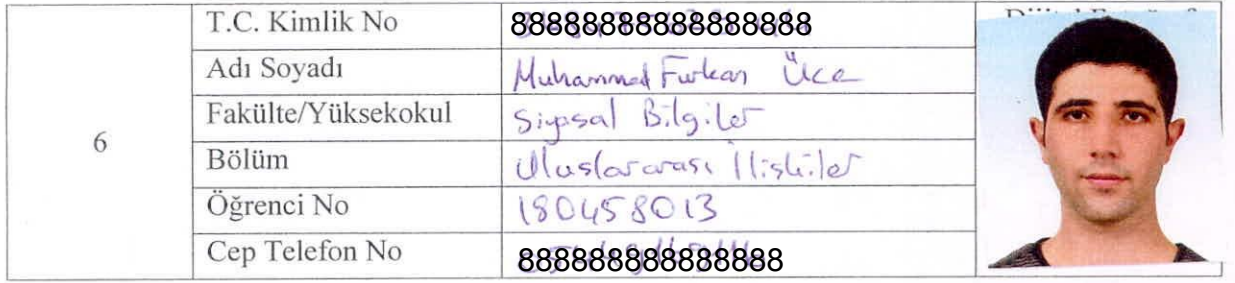 T.C. Kimlik No 88888888888888888
Adı Soyadı Muhammed Furkan Üce
Fakülte/Yüksekokul Siyasal Bilgiler
6
Bölüm Uluslararası İlişkiler
Öğrenci No 180458013
Cep Telefon No 888888888888888